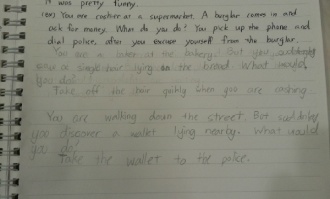 it was pretty funny.
(ex) You are cashier at a supermarket. A burglar comes in and
ask for money. What do you do? You pick up the phone and
dial police, after you excuse yourself from the burglar.
You are a baker at the bakery. But you suddenly
saw a single hair lying on the bread. What would
you do?
Take off the hair quickly when you are cashing.
You are walking down the street. But suddenly
you discover a wallet lying nearby. What would
you do?
Take the wallet to the police.